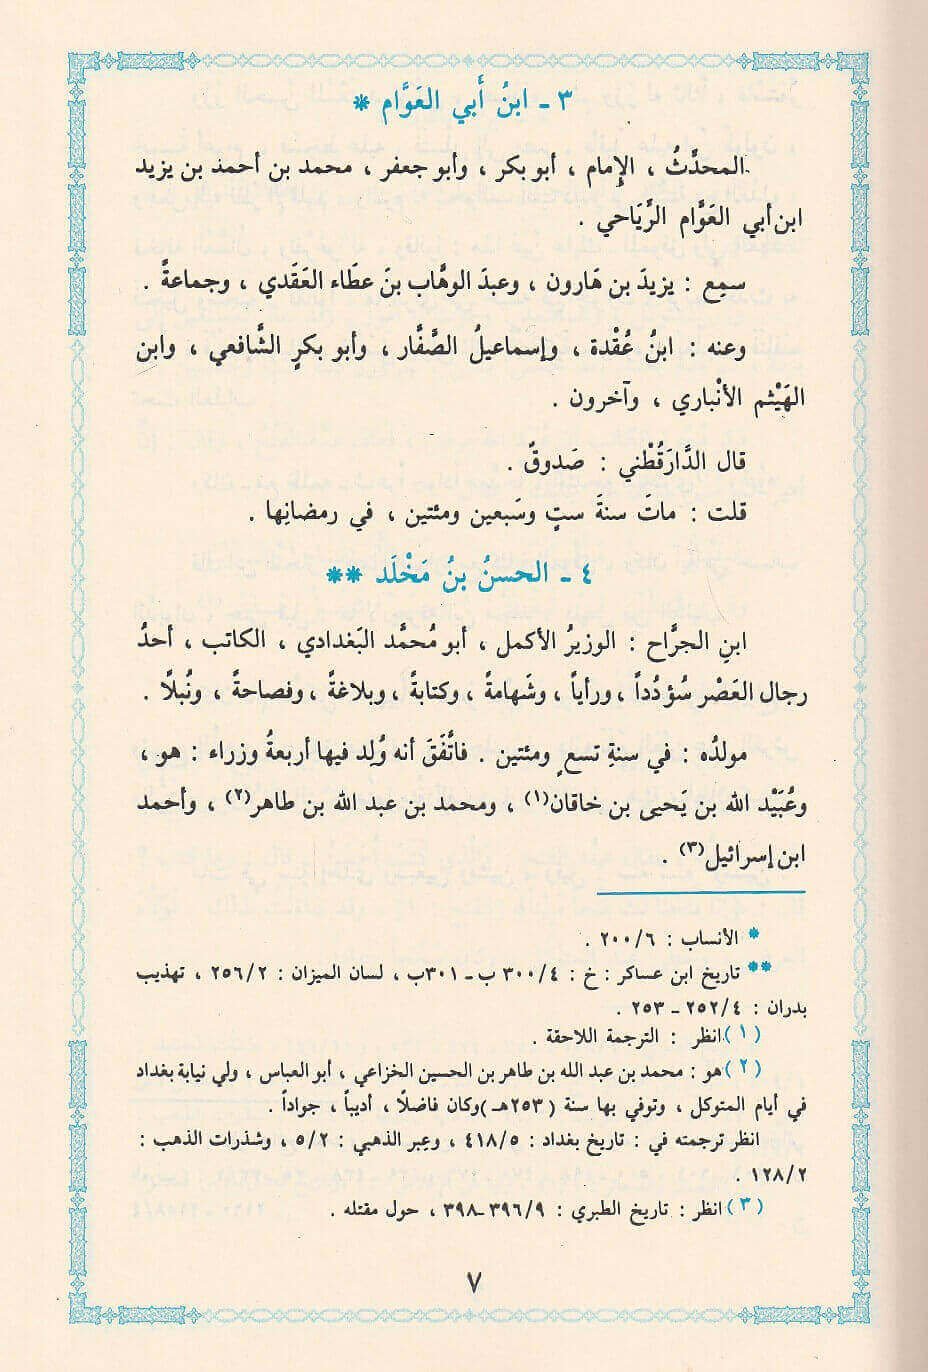 ٣ - ابنُ أَبي العَوَّام *
المحدِّثُ ، الإِمام ، أبو بكر ، وأبو جعفر ، محمد بن أحمد بن يزيد
ابن أبي العَوَّام الرَّيَاحي .
سمِع : يزيدَ بن هَارون ، وعبدَ الوهَّاب بنَ عطَاء العَقَدي ، وجماعةً .
وعنه : ابنُ عُقْدة ، وإسماعيلُ الصَّفَّار ، وأبو بكرٍ الشَّافعي ، وابن
الهَيْثم الأنْباري ، وآخرون .
قال الدَّارَقُطْني : صَدوقٌ .
قلت : ماتَ سنةَ ستٍ وسَبعين ومئتين ، في رمضانِها .
٤ - الحسنُ بنُ مَخْلَد **
ابنِ الجرَّاح : الوزيرُ الأكمل ، أبو مُحمَّد البَغدادي ، الكاتب ، أحدُ
رجال العَصْر سُؤدُداً ، ورأياً ، وشَهامةً ، وكتابةً ، وبلاغةً ، وفصاحةً ، ونُبلًا .
مولدُه : في سنةِ تسعٍ ومئتين . فاتَّفَقَ أنه وُلِد فيها أربعةُ وزراء : هو ،
وعُبَيْد الله بن يَحيى بن خاقان(١) ، ومحمد بن عبد الله بن طاهر(٢) ، وأحمد
ابن إسرائيل(٣) .
* الأنساب : ٢٠٠/٦ .
** تاريخ ابن عساكر : خ : ٣٠٠/٤ ب - ٣٠١ب ، لسان الميزان : ٢٥٦/٢ ، تهذيب
بدران : ٢٥٢/٤ - ٢٥٣ .
(١) انظر : الترجمة اللاحقة .
(٢) هو : محمد بن عبد الله بن طاهر بن الحسين الخزاعي ، أبو العباس ، ولي نيابة بغداد
في أيام المتوكل ، وتوفي بها سنة (٢٥٣هـ) وكان فاضلًا ، أديباً ، جواداً .
انظر ترجمته في : تاريخ بغداد : ٤١٨/٥ ، وعِبر الذهبي : ٥/٢ ، وشذرات الذهب :
١٢٨/٢ .
(٣) انظر : تاريخ الطبري : ٣٩٦/٩-٣٩٨ ، حول مقتله .
٧